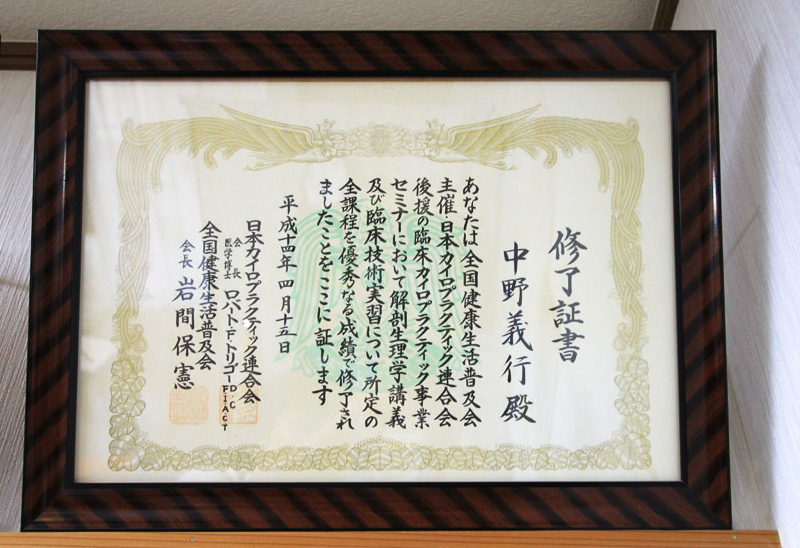 修了証書
中野義行殿
あなたは全国健康生活普及会
主催・日本カイロプラクティック連合会
後援の臨床カイロプラクティック事業
セミナーにおいて解剖生理学講義
及び臨床技術実習について所定の
全課程を優秀なる成績で修了され
ましたことをここに証します
平成十四年四月十五日
日本カイロプラクティック連合会
会長
医学博士 ロバート・F・トリゴーD.C F.I.A.C.T
全国健康生活普及会
会長 岩間保憲